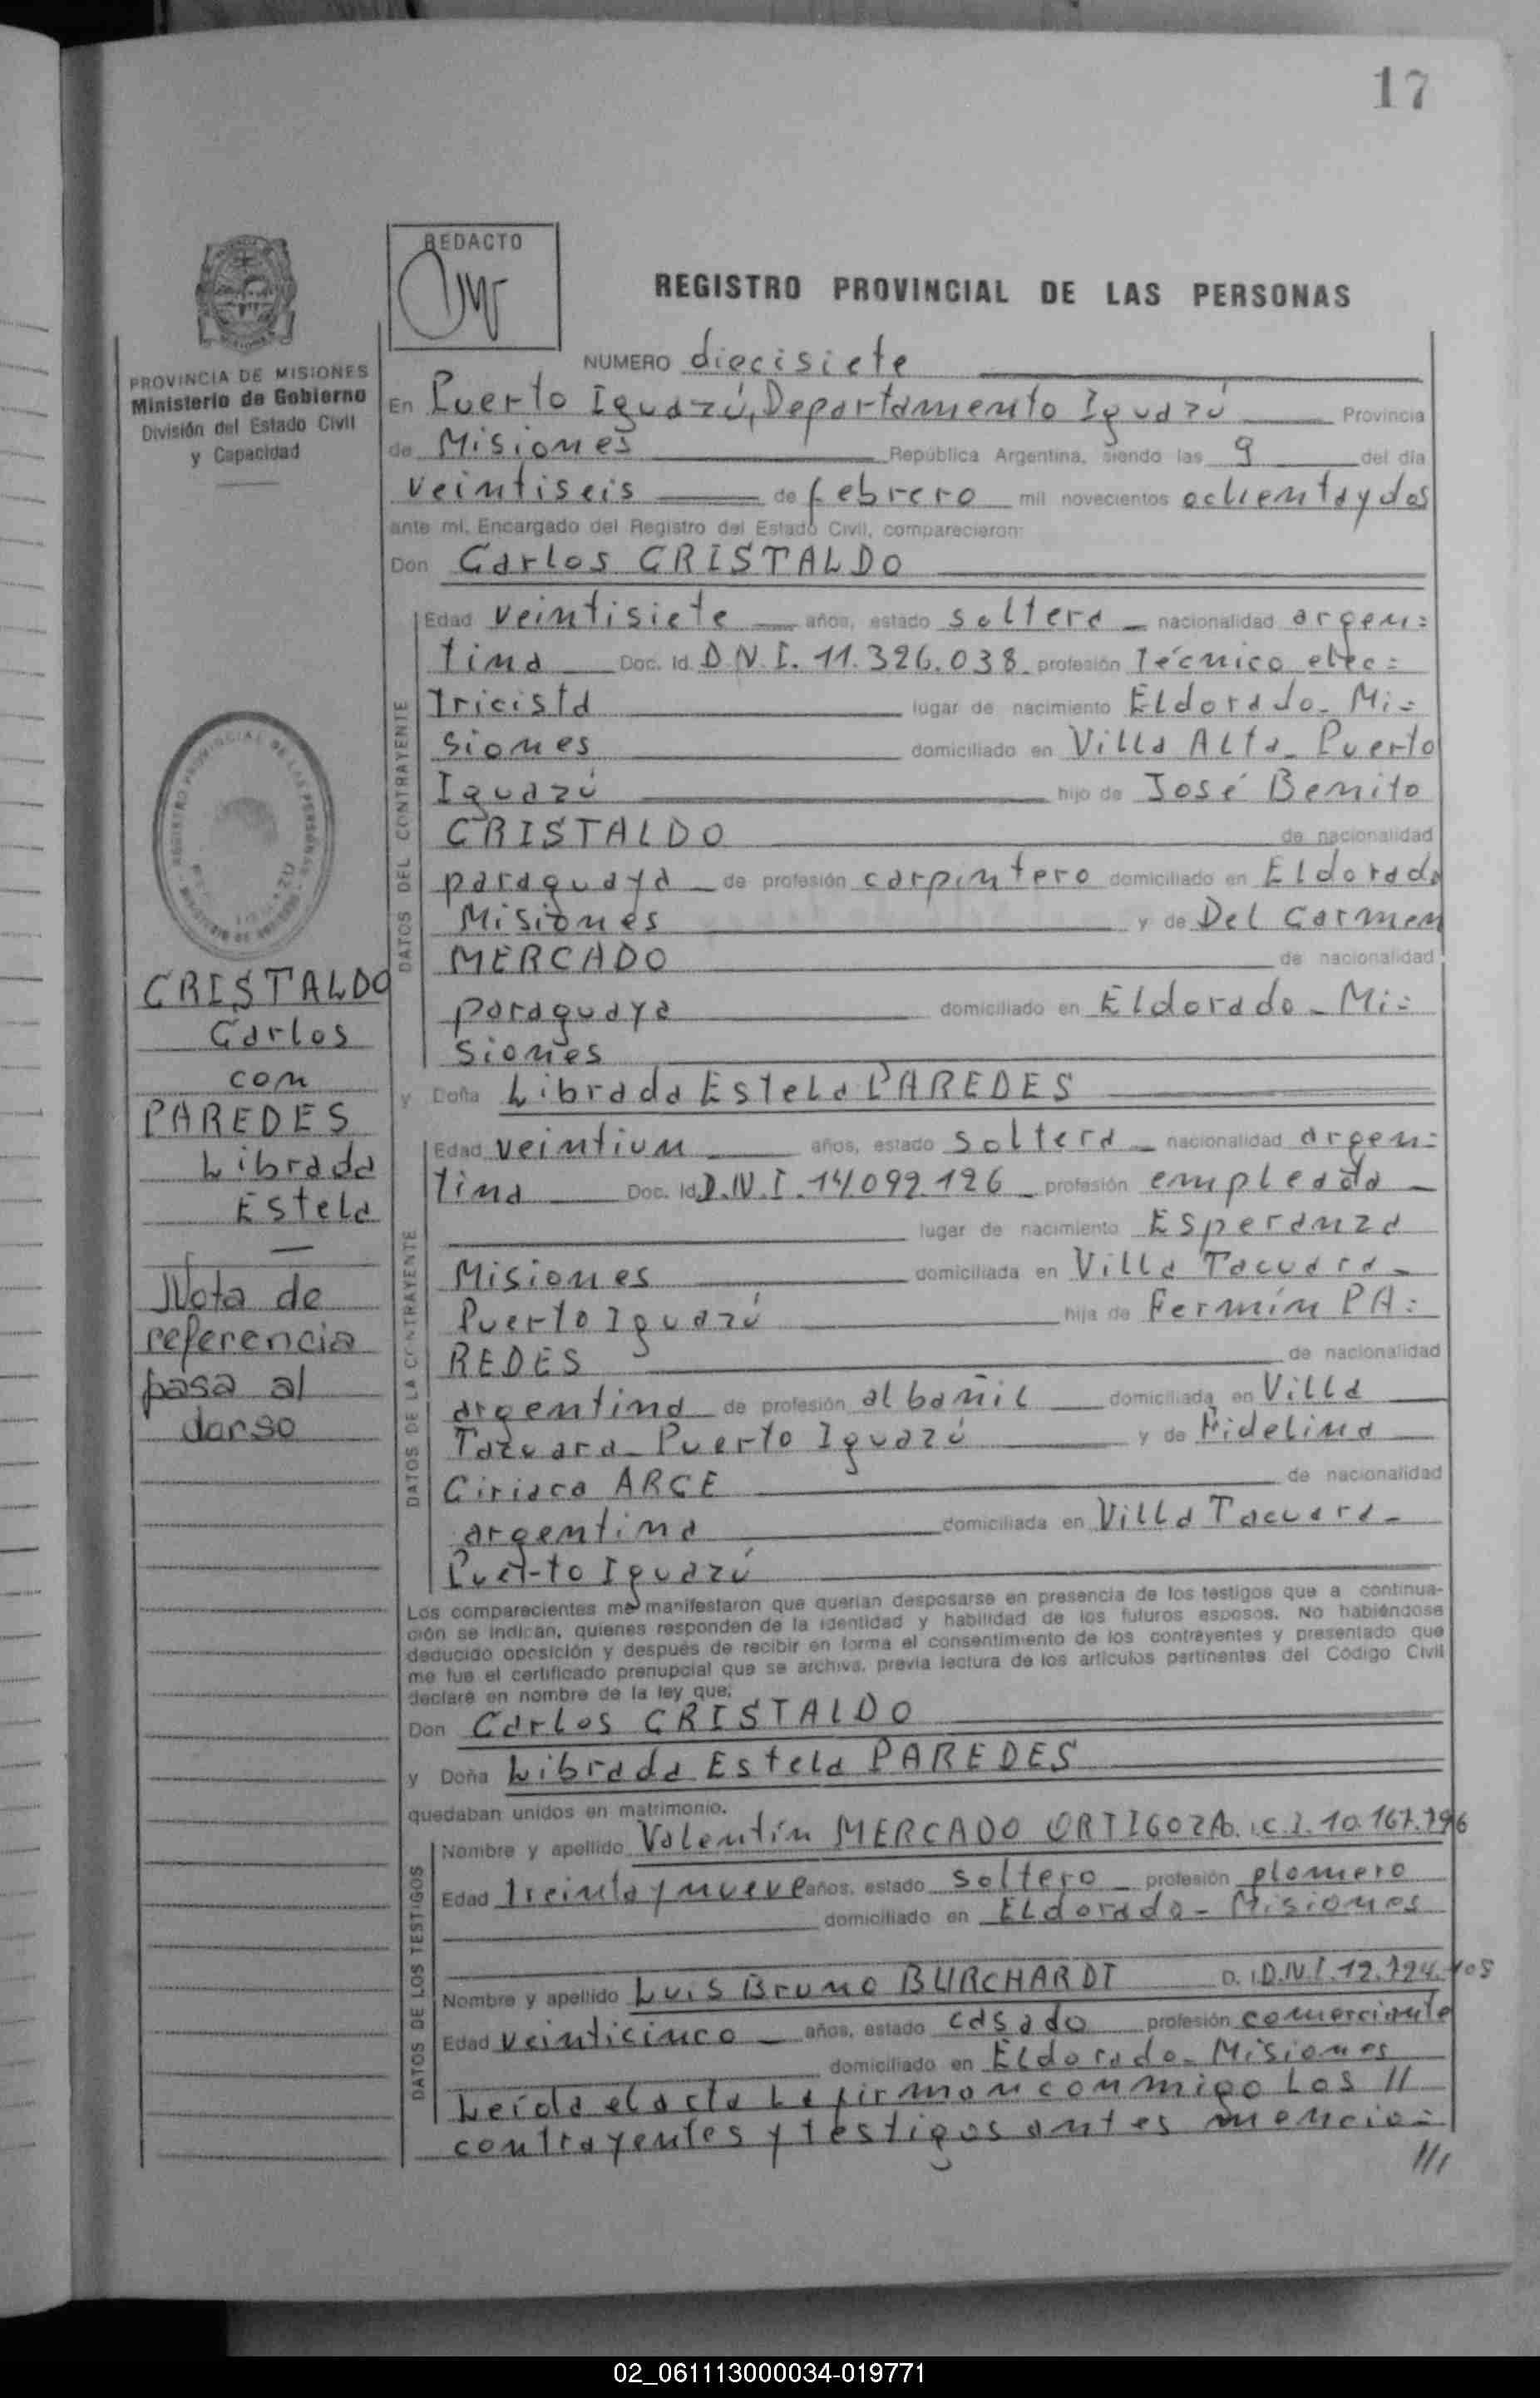 17
REDACTO
REGISTRO PROVINCIAL DE LAS PERSONAS
PROVINCIA DE MISIONES
Ministerio de Gobierno
División del Estado Civil
y Capacidad
NUMERO diecisiete
En Puerto Iguazú, Departamento Iguazú Provincia
de Misiones República Argentina, siendo las 9 del día
veintiseis de febrero mil novecientos ochenta y dos
ante mí, Encargado del Registro del Estado Civil, comparecieron:
Don Carlos CRISTALDO
DATOS DEL CONTRAYENTE
Edad veintisiete años, estado soltero nacionalidad argen=
tina Doc. Id. D.N.I. 11.326.038 profesión Técnico elec=
tricista lugar de nacimiento Eldorado - Mi=
siones domiciliado en Villa Alta - Puerto
Iguazú hijo de José Benito
CRISTALDO de nacionalidad
paraguaya de profesión carpintero domiciliado en Eldorado
Misiones y de Del Carmen
MERCADO de nacionalidad
paraguaya domiciliado en Eldorado - Mi=
siones
y Doña Librada Estela PAREDES
DATOS DE LA CONTRAYENTE
Edad veintiun años, estado soltera nacionalidad argen=
tina Doc. Id. D.N.I. 14.099.126 profesión empleada
lugar de nacimiento Esperanza
Misiones domiciliada en Villa Tacuara -
Puerto Iguazú hija de Fermín PA=
REDES de nacionalidad
argentina de profesión albañil domiciliada en Villa
Tacuara - Puerto Iguazú y de Fidelina
Ciriaca ARCE de nacionalidad
argentina domiciliada en Villa Tacuara -
Puerto Iguazú
CRISTALDO
Carlos
con
PAREDES
Librada
Estela
Nota de
referencia
pasa al
dorso
Los comparecientes me manifestaron que querían desposarse en presencia de los testigos que a continua-
ción se indican, quienes responden de la identidad y habilidad de los futuros esposos. No habiéndose
deducido oposición y después de recibir en forma el consentimiento de los contrayentes y presentado que
me fue el certificado prenupcial que se archiva, previa lectura de los artículos pertinentes del Código Civil
declaré en nombre de la ley que:
Don Carlos CRISTALDO
y Doña Librada Estela PAREDES
quedaban unidos en matrimonio.
DATOS DE LOS TESTIGOS
Nombre y apellido Valentín MERCADO ORTIGOZA C.I. 10.167.796
Edad treinta y nueve años, estado soltero profesión plomero
domiciliado en Eldorado - Misiones
Nombre y apellido Luis Bruno BURCHARDT D.N.I.
Edad veinticinco años, estado casado profesión comerciante
domiciliado en Eldorado - Misiones
Leída el acta la firman conmigo los //
contrayentes y testigos antes mencio=
///
02_061113000034-019771